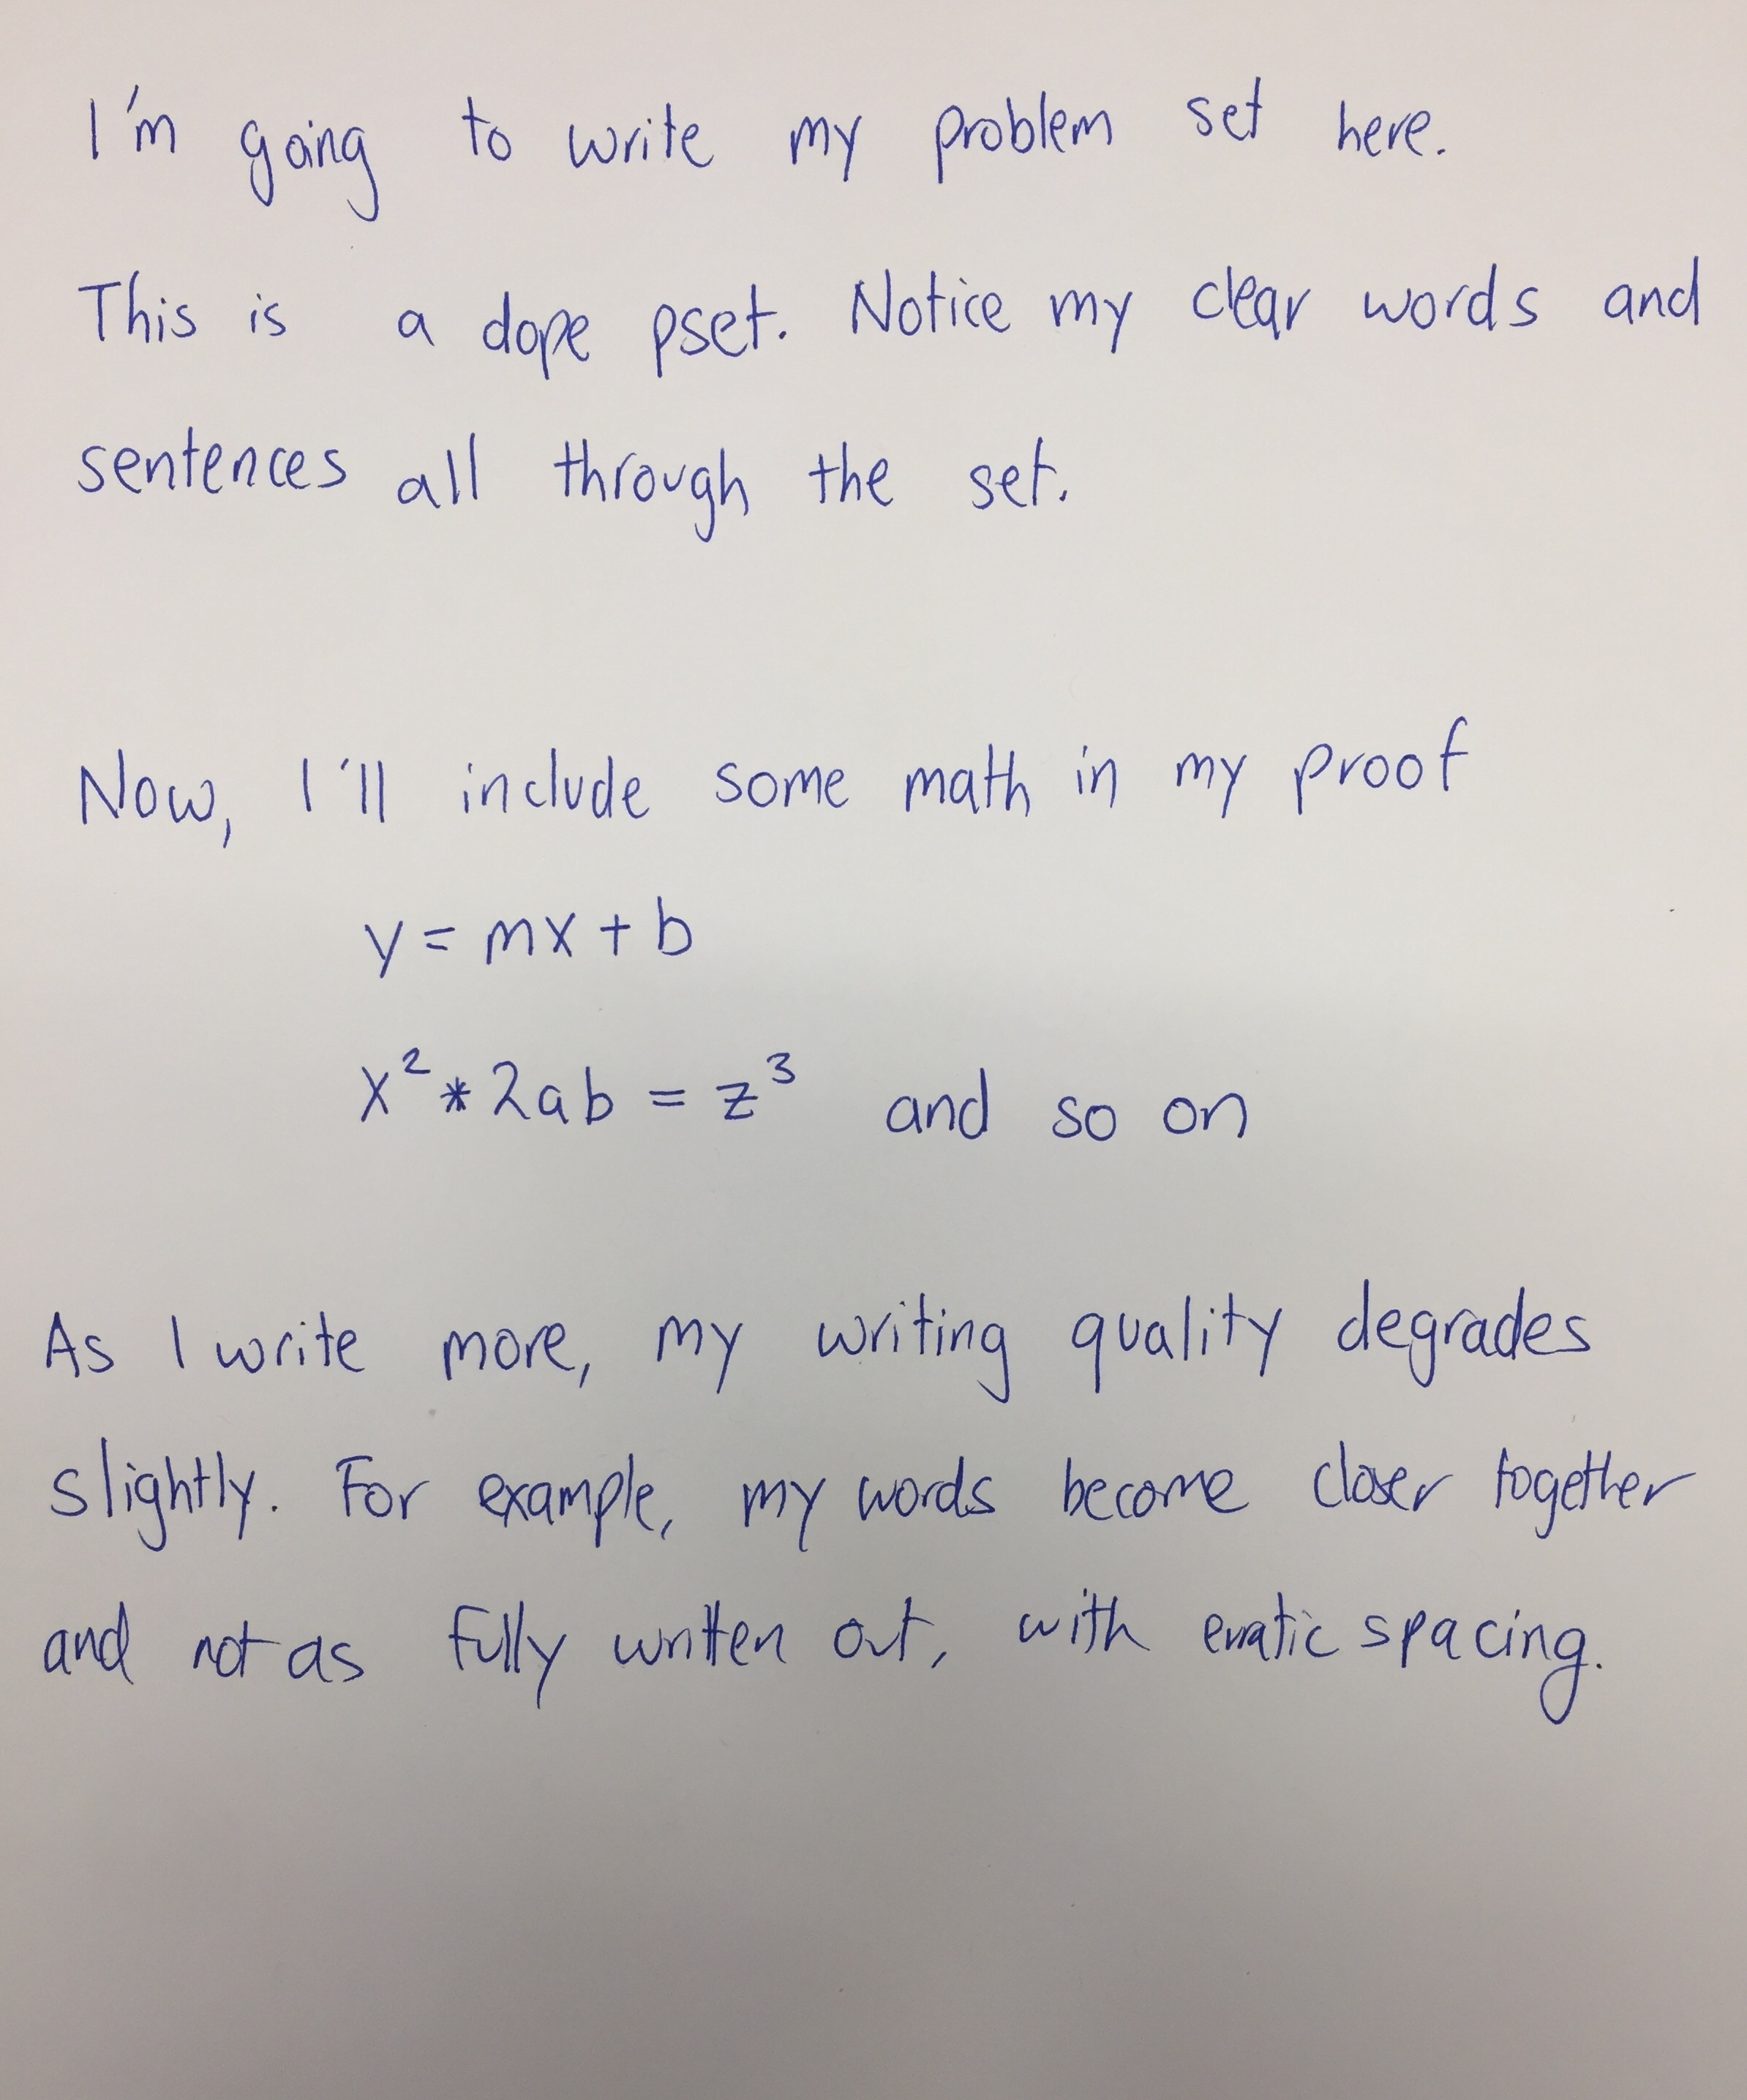 I'm going to write my problem set here.
This is a dope pset. Notice my clear words and
sentences all through the set.
Now, I'll include some math in my proof
y = mx + b
x² * 2ab = z³ and so on
As I write more, my writing quality degrades
slightly. For example, my words become closer together
and not as fully written out, with erratic spacing.